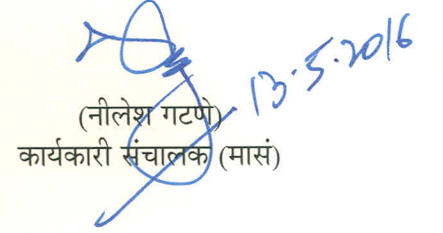 13.5.2016
(नीलेश गटणे)
कार्यकारी संचालक (मासं)